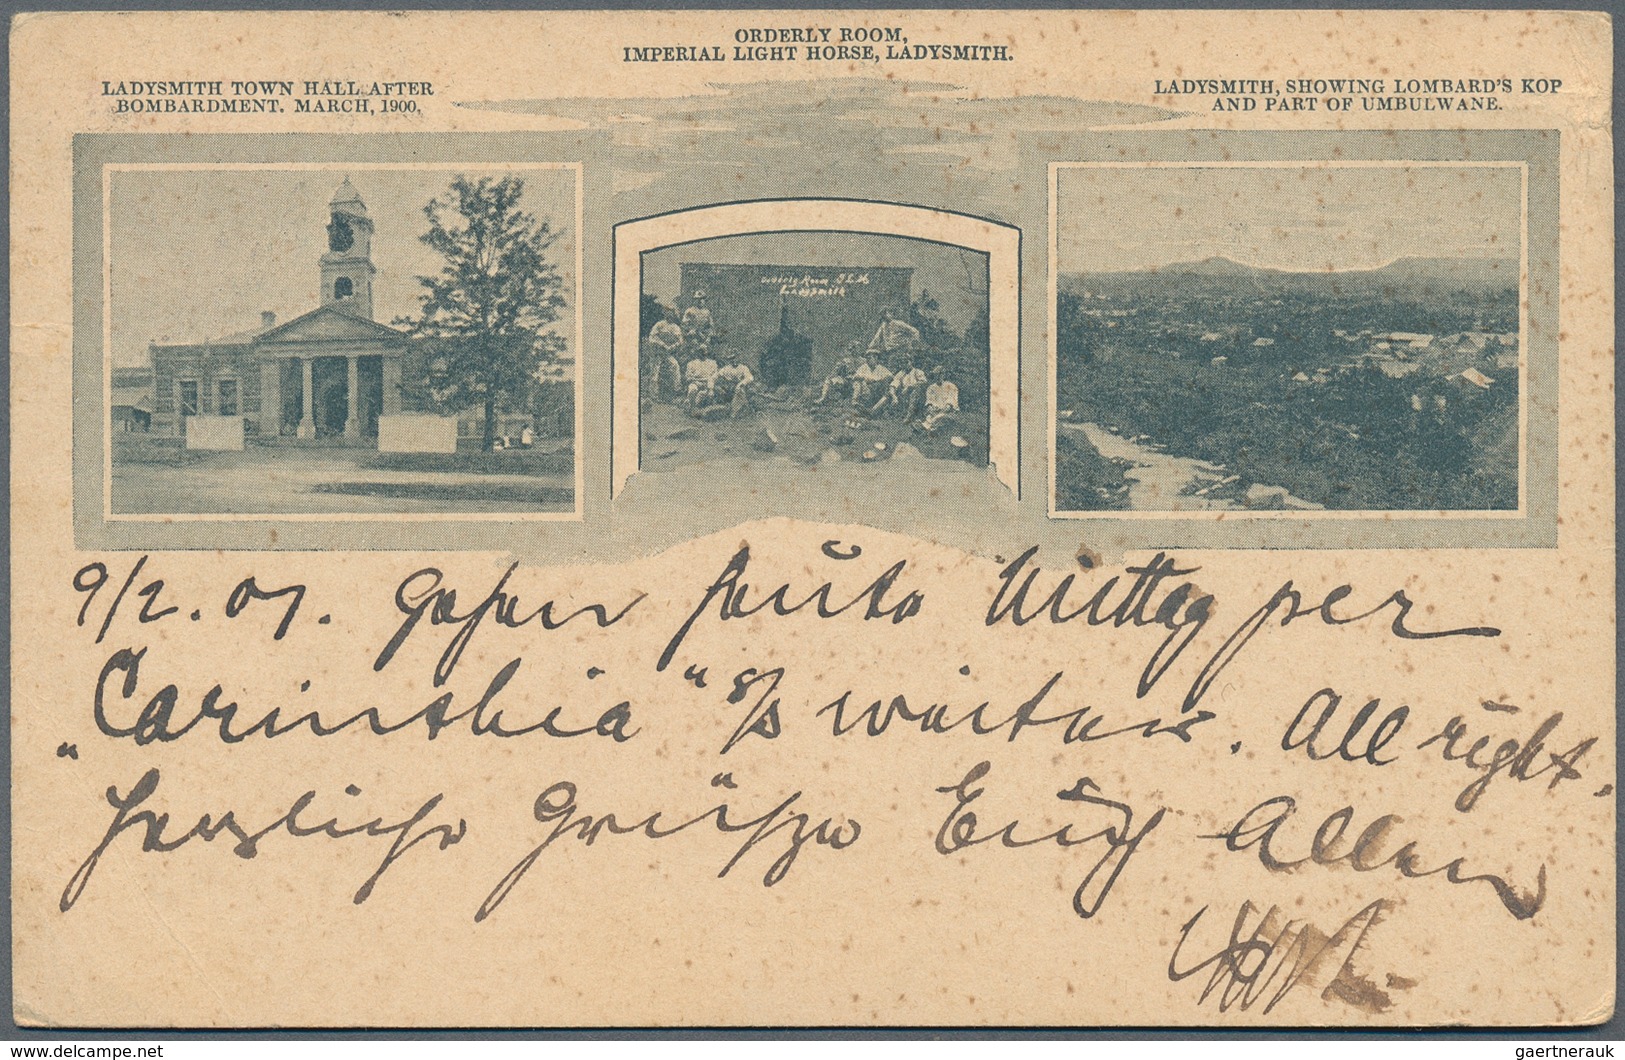 ORDERLY ROOM,
IMPERIAL LIGHT HORSE, LADYSMITH.
LADYSMITH TOWN HALL AFTER
BOMBARDMENT. MARCH, 1900.
LADYSMITH, SHOWING LOMBARD'S KOP
AND PART OF UMBULWANE.
Orderly Room I.L.H.
Ladysmith
9/2. 01. Gehen heute Mittag per
„Carinthia“ s/s weiter. All right.
Herzliche Grüsze Euch Allen
delcampe.net
gaertnerauk